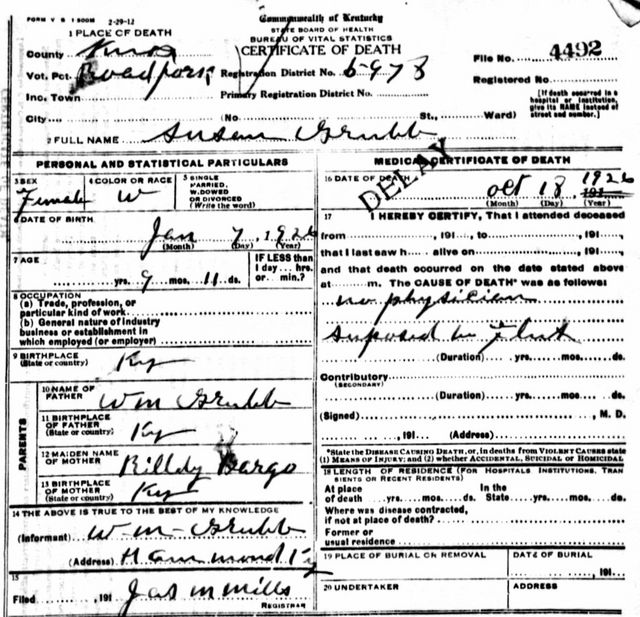 FORM V S 1 500M 2-29-12
Commonwealth of Kentucky
STATE BOARD OF HEALTH
BUREAU OF VITAL STATISTICS
CERTIFICATE OF DEATH
1 PLACE OF DEATH
County Knox
Vot. Pct. Roadfork Registration District No. 6978
File No. 4492
Inc. Town Primary Registration District No.
Registered No.
City (No St., Ward)
[If death occurred in a
hospital or institution,
give its NAME instead of
street and number.]
2 FULL NAME Susan Grubb
DELAY
PERSONAL AND STATISTICAL PARTICULARS
3 SEX
Female
4 COLOR OR RACE
W
5 SINGLE
MARRIED,
WIDOWED
OR DIVORCED
(Write the word)
6 DATE OF BIRTH
Jan 7, 1926
(Month) (Day) (Year)
7 AGE
yrs. 9 mos. 11 ds.
IF LESS than
1 day... hrs.
or... min.?
8 OCCUPATION
(a) Trade, profession, or
particular kind of work
(b) General nature of industry
business or establishment in
which employed (or employer)
9 BIRTHPLACE
(State or country) Ky
PARENTS
10 NAME OF
FATHER Wm Grubb
11 BIRTHPLACE
OF FATHER
(State or country) Ky
12 MAIDEN NAME
OF MOTHER Bargo
13 BIRTHPLACE
OF MOTHER
(State or country) Ky
14 THE ABOVE IS TRUE TO THE BEST OF MY KNOWLEDGE
(Informant) Wm Grubb
(Address) Hammond Ky
15
Filed , 191 Jas M Mills
REGISTRAR
MEDICAL CERTIFICATE OF DEATH
16 DATE OF DEATH
Oct 18, 1926
191
(Month) (Day) (Year)
17 I HEREBY CERTIFY, That I attended deceased
from , 191 , to , 191 ,
that I last saw h alive on , 191 ,
and that death occurred on the date stated above
at m. The CAUSE OF DEATH* was as follows:
no physician
suposed be Flux
(Duration) yrs. mos. ds.
Contributory
(SECONDARY)
(Duration) yrs. mos. ds.
(Signed) , M. D.
, 191 (Address)
*State the DISEASE CAUSING DEATH, or, in deaths from VIOLENT CAUSES state
(1) MEANS OF INJURY; and (2) whether ACCIDENTAL, SUICIDAL or HOMICIDAL
18 LENGTH OF RESIDENCE (FOR HOSPITALS INSTITUTIONS, TRAN
SIENTS OR RECENT RESIDENTS)
At place In the
of death yrs. mos. ds. State yrs. mos. ds.
Where was disease contracted,
if not at place of death?
Former or
usual residence
19 PLACE OF BURIAL OR REMOVAL
DATE OF BURIAL
, 191
20 UNDERTAKER
ADDRESS